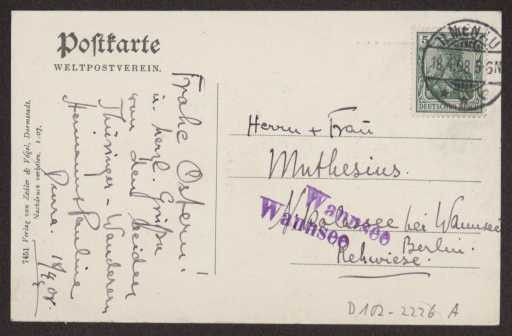 Postkarte
WELTPOSTVEREIN.
7451 Verlag von Zedler & Vogel, Darmstadt.
Nachdruck verboten. 1.07.
Frohe Ostern!
u. herzl. Grüße
von den beiden
Thüringer-Wanderern
Hermann + Pauline
18/4.08.
5
DEUTSCHES REICH
ILMENAU
18.4.08.5-6N
Herrn + Frau
Muthesius.
Nikolassee bei Wannsee
Berlin.
Rehwiese.
Wannsee
Wannsee
D102-2226 A